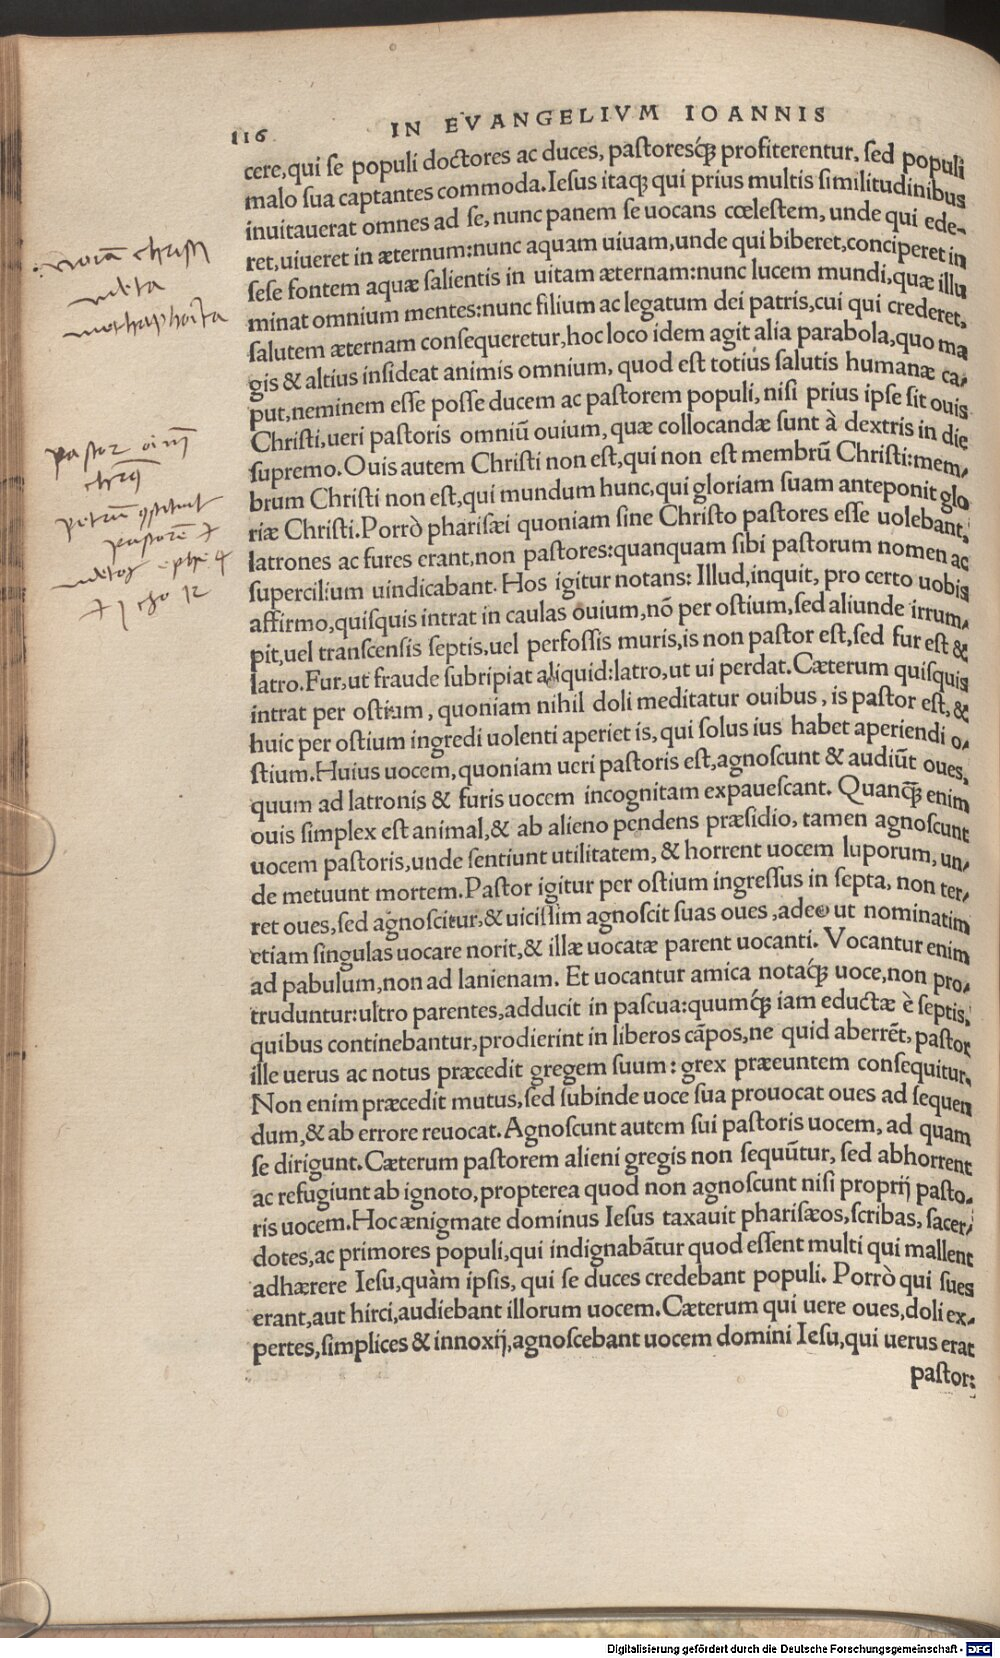 116 IN EVANGELIVM IOANNIS
cere,qui se populi doctores ac duces, pastoresq́ꝫ profiterentur, sed populi
malo sua captantes commoda.Iesus itaqꝫ qui prius multis similitudinibus
inuitauerat omnes ad se, nunc panem se uocans cœlestem, unde qui ede-
ret,uiueret in æternum:nunc aquam uiuam,unde qui biberet,conciperet in
sese fontem aquæ salientis in uitam æternam:nunc lucem mundi,quæ illu
minat omnium mentes:nunc filium ac legatum dei patris,cui qui crederet,
salutem æternam consequeretur,hoc loco idem agit alia parabola,quo ma
gis & altius insideat animis omnium, quod est totius salutis humanæ ca-
put,neminem esse posse ducem ac pastorem populi, nisi prius ipse sit ouis
Christi,ueri pastoris omniū ouium, quæ collocandæ sunt à dextris in die
supremo.Ouis autem Christi non est,qui non est membrū Christi:mem-
brum Christi non est,qui mundum hunc,qui gloriam suam anteponit glo
riæ Christi.Porrò pharisæi quoniam sine Christo pastores esse uolebant,
latrones ac fures erant,non pastores:quanquam sibi pastorum nomen ac
supercilium uindicabant. Hos igitur notans: Illud,inquit, pro certo uobis
affirmo,quisquis intrat in caulas ouium,nō per ostium,sed aliunde irrum-
pit,uel transcensis septis,uel perfossis muris,is non pastor est,sed fur est &
latro.Fur,ut fraude subripiat aliquid:latro,ut ui perdat.Cæterum quisquis
intrat per ostium, quoniam nihil doli meditatur ouibus, is pastor est, &
huic per ostium ingredi uolenti aperiet is, qui solus ius habet aperiendi o-
stium.Huius uocem,quoniam ueri pastoris est,agnoscunt & audiūt oues,
quum ad latronis & furis uocem incognitam expauescant. Quanq̄ꝫ enim
ouis simplex est animal,& ab alieno pendens præsidio, tamen agnoscunt
uocem pastoris,unde sentiunt utilitatem, & horrent uocem luporum, un-
de metuunt mortem.Pastor igitur per ostium ingressus in septa, non ter-
ret oues,sed agnoscitur,& uicissim agnoscit suas oues ,adeo ut nominatim
etiam singulas uocare norit,& illæ uocatæ parent uocanti. Vocantur enim
ad pabulum,non ad lanienam. Et uocantur amica notaq́ꝫ uoce,non pro-
truduntur:ultro parentes,adducit in pascua:quumq́ꝫ iam eductæ è septis,
quibus continebantur,prodierint in liberos cāpos,ne quid aberrēt, pastor
ille uerus ac notus præcedit gregem suum: grex præeuntem consequitur.
Non enim præcedit mutus,sed subinde uoce sua prouocat oues ad sequen
dum,& ab errore reuocat.Agnoscunt autem sui pastoris uocem, ad quam
se dirigunt.Cæterum pastorem alieni gregis non sequūtur, sed abhorrent
ac refugiunt ab ignoto,propterea quod non agnoscunt nisi proprij pasto-
ris uocem.Hoc ænigmate dominus Iesus taxauit pharisæos,scribas, sacer-
dotes,ac primores populi,qui indignabātur quod essent multi qui mallent
adhærere Iesu,quàm ipsis, qui se duces credebant populi. Porrò qui sues
erant,aut hirci,audiebant illorum uocem.Cæterum qui uere oues,doli ex-
pertes,simplices & innoxij,agnoscebant uocem domini Iesu,qui uerus erat
pastor:
christi
pastor
12
Digitalisierung gefördert durch die Deutsche Forschungsgemeinschaft - DFG